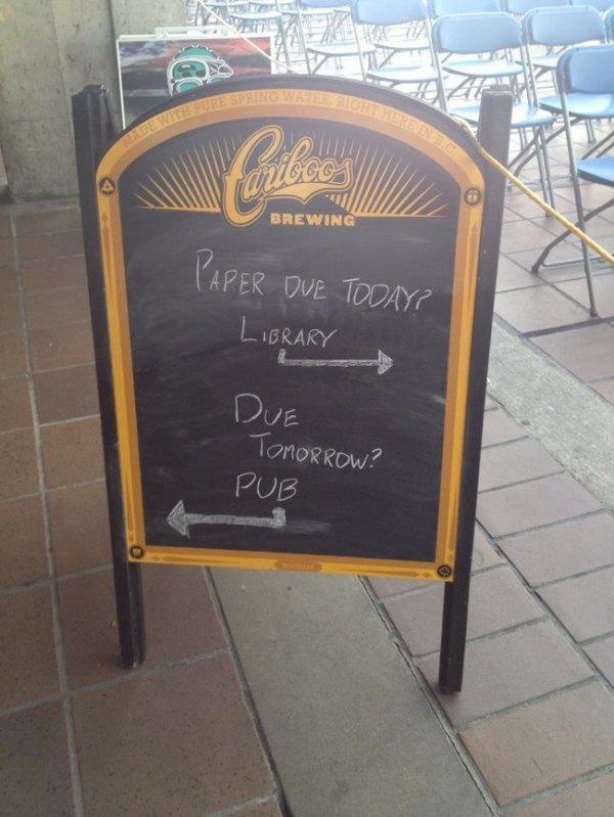 MADE WITH PURE SPRING WATER, RIGHT HERE IN B.C.
Cariboo
BREWING
PAPER DUE TODAY?
LIBRARY
DUE
TOMORROW?
PUB